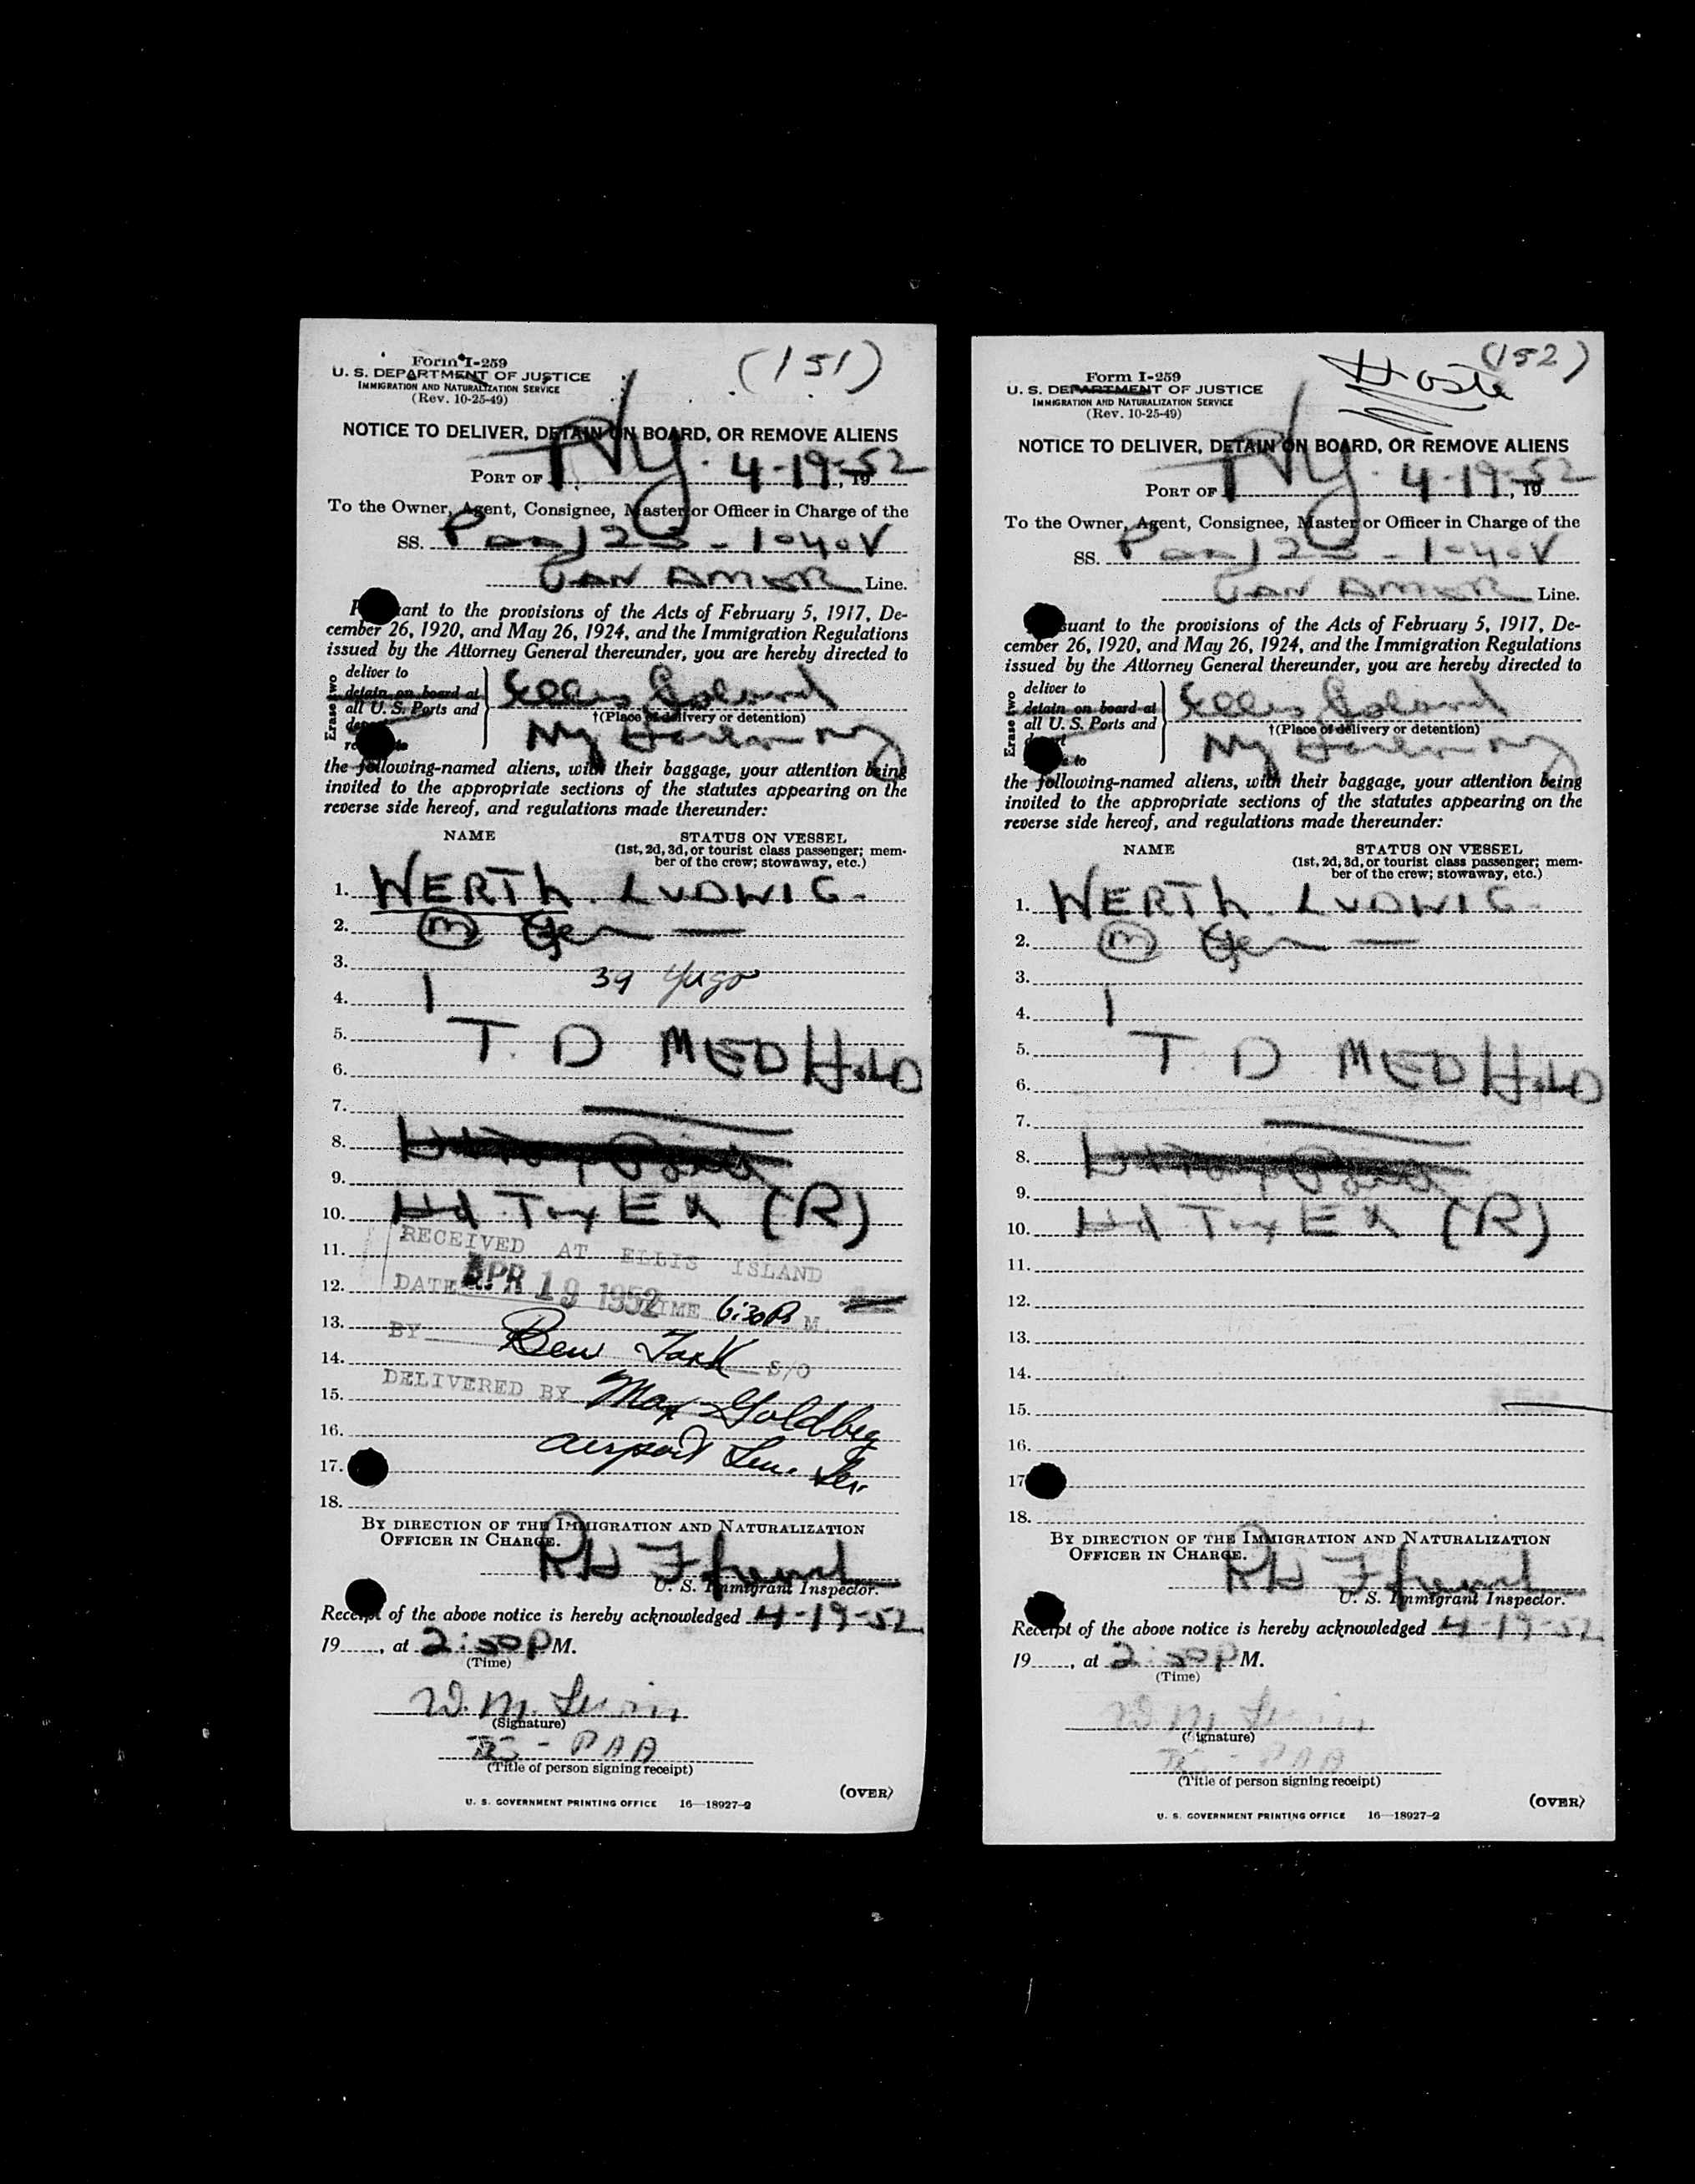 (151)
Form I-259
U. S. DEPARTMENT OF JUSTICE
IMMIGRATION AND NATURALIZATION SERVICE
(Rev. 10-25-49)
NOTICE TO DELIVER, DETAIN ON BOARD, OR REMOVE ALIENS
PORT OF NY. 4-19-52, 19
To the Owner, Agent, Consignee, Master or Officer in Charge of the
SS. Paa 123 -
PAN AMER Line.
Pursuant to the provisions of the Acts of February 5, 1917, De-
cember 26, 1920, and May 26, 1924, and the Immigration Regulations
issued by the Attorney General thereunder, you are hereby directed to
Erase two
deliver to
detain on board at
all U. S. Ports and
Ellis Island
†(Place of delivery or detention)
NY
the following-named aliens, with their baggage, your attention being
invited to the appropriate sections of the statutes appearing on the
reverse side hereof, and regulations made thereunder:
NAME STATUS ON VESSEL
(1st, 2d, 3d, or tourist class passenger; mem-
ber of the crew; stowaway, etc.)
1. WERTH. LUDWIG.
2. (m) Ger —
3. 39 Yugo
4. 1
5. T. D MED HOLD
6.
7.
8.
9.
10. Hd Tax EX (R)
11. RECEIVED AT ELLIS ISLAND
12. DATE APR 19 1952 TIME 6:30 P M.
13. BY Ben Tark S/O
14.
15. DELIVERED BY Max Goldberg
16. airport
17.
18.
BY DIRECTION OF THE IMMIGRATION AND NATURALIZATION
OFFICER IN CHARGE.
U. S. Immigrant Inspector.
Receipt of the above notice is hereby acknowledged 4-19-52
19, at 2:50 P M.
(Time)
W. M.
(Signature)
- PAA
(Title of person signing receipt)
(OVER)
U. S. GOVERNMENT PRINTING OFFICE 16—18927-2
(152)
Form I-259
U. S. DEPARTMENT OF JUSTICE
IMMIGRATION AND NATURALIZATION SERVICE
(Rev. 10-25-49)
NOTICE TO DELIVER, DETAIN ON BOARD, OR REMOVE ALIENS
PORT OF NY. 4-19-52, 19
To the Owner, Agent, Consignee, Master or Officer in Charge of the
SS. Paa 123 -
PAN AMER Line.
Pursuant to the provisions of the Acts of February 5, 1917, De-
cember 26, 1920, and May 26, 1924, and the Immigration Regulations
issued by the Attorney General thereunder, you are hereby directed to
Erase two
deliver to
detain on board at
all U. S. Ports and
Ellis Island
†(Place of delivery or detention)
NY
the following-named aliens, with their baggage, your attention being
invited to the appropriate sections of the statutes appearing on the
reverse side hereof, and regulations made thereunder:
NAME STATUS ON VESSEL
(1st, 2d, 3d, or tourist class passenger; mem-
ber of the crew; stowaway, etc.)
1. WERTH. LUDWIG.
2. (m) Ger —
3.
4. 1
5. T. D MED HOLD
6.
7.
8.
9.
10. Hd Tax EX (R)
11.
12.
13.
14.
15.
16.
17
18.
BY DIRECTION OF THE IMMIGRATION AND NATURALIZATION
OFFICER IN CHARGE.
U. S. Immigrant Inspector.
Receipt of the above notice is hereby acknowledged 4-19-52
19, at 2:50 P M.
(Time)
W. M.
(Signature)
- PAA
(Title of person signing receipt)
(OVER)
U. S. GOVERNMENT PRINTING OFFICE 16—18927-2